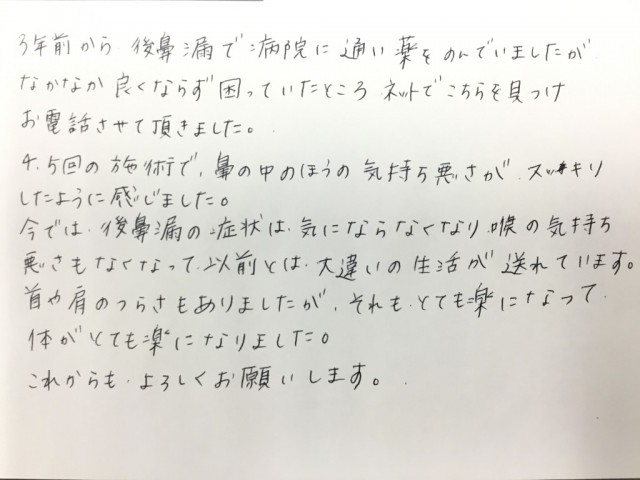 3年前から後鼻漏で病院に通い薬をのんでいましたが
なかなか良くならず困っていたところネットでこちらを見つけ
お電話させて頂きました。
4、5回の施術で、鼻の中のほうの気持ち悪さがスッキリ
したように感じました。
今では、後鼻漏の症状は、気にならなくなり喉の気持ち
悪さもなくなって、以前とは、大違いの生活が送れています。
首や肩のつらさもありましたが、それも、とても楽になって、
体がとても楽になりました。
これからも、よろしくお願いします。